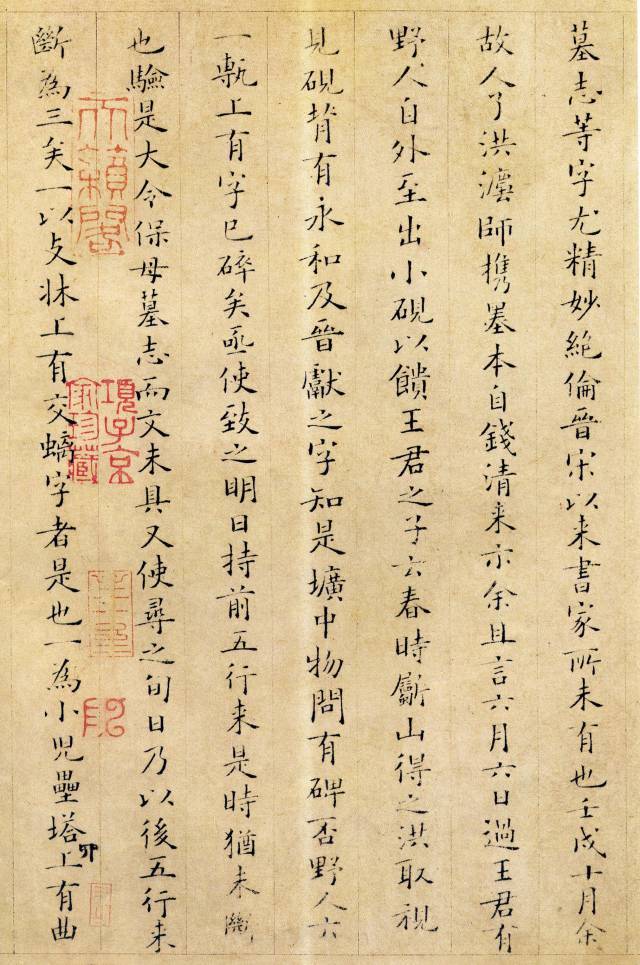 墓志等字尤精妙絶倫晉宋以来書家所未有也壬戌十月余
故人了洪澐師携墨本自錢清来示余且言六月六日過王君有
野人自外至出小硯以饋王君之子云春時斸山得之洪取視
見硯背有永和及晉獻之字知是壙中物問有碑否野人云
一甎上有字已碎矣亟使致之明日持前五行来是時猶未斷
也驗是大令保母墓志而文未具又使尋之旬日乃以後五行来
斷為三矣一以支牀上有交螭字者是也一為小兒壘塔上有曲
卯
天籟閣
項子京
家珍藏